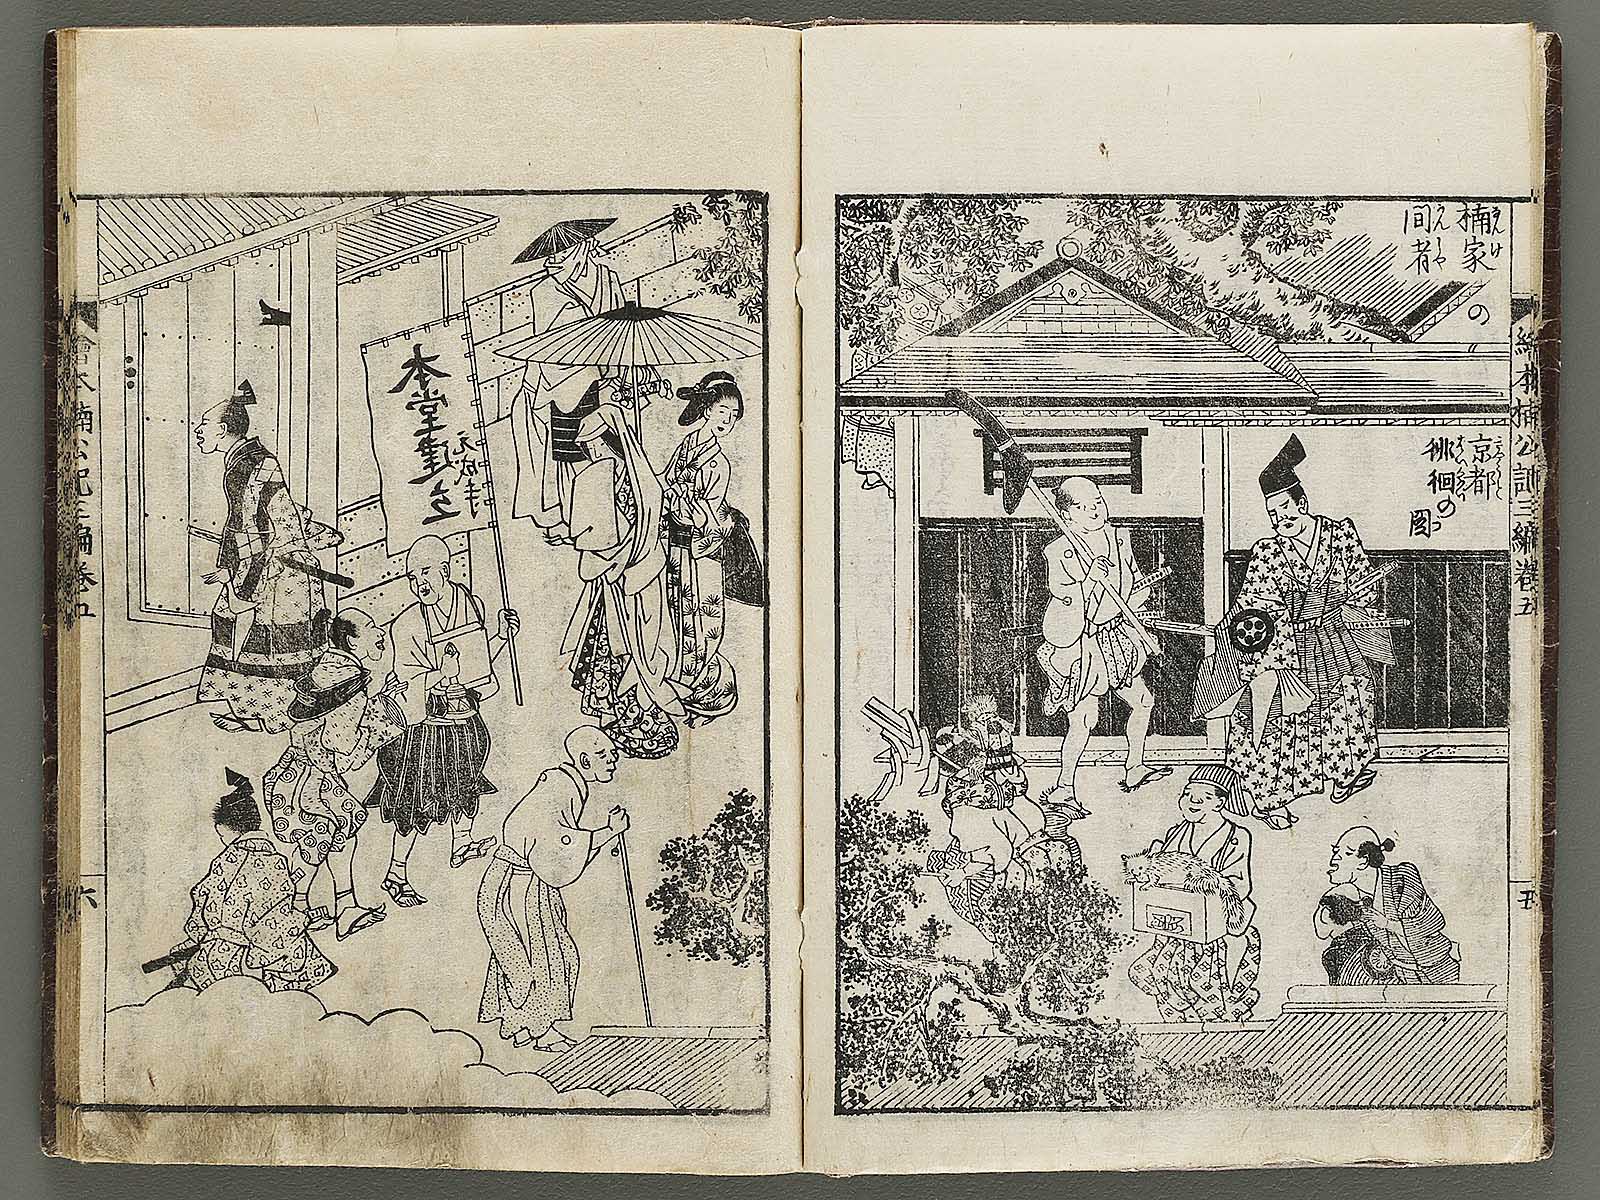 楠家の
間者
京都
徘徊の
図
繪本楠公記三編巻五
五
本堂建立
繪本楠公記三編巻五
六